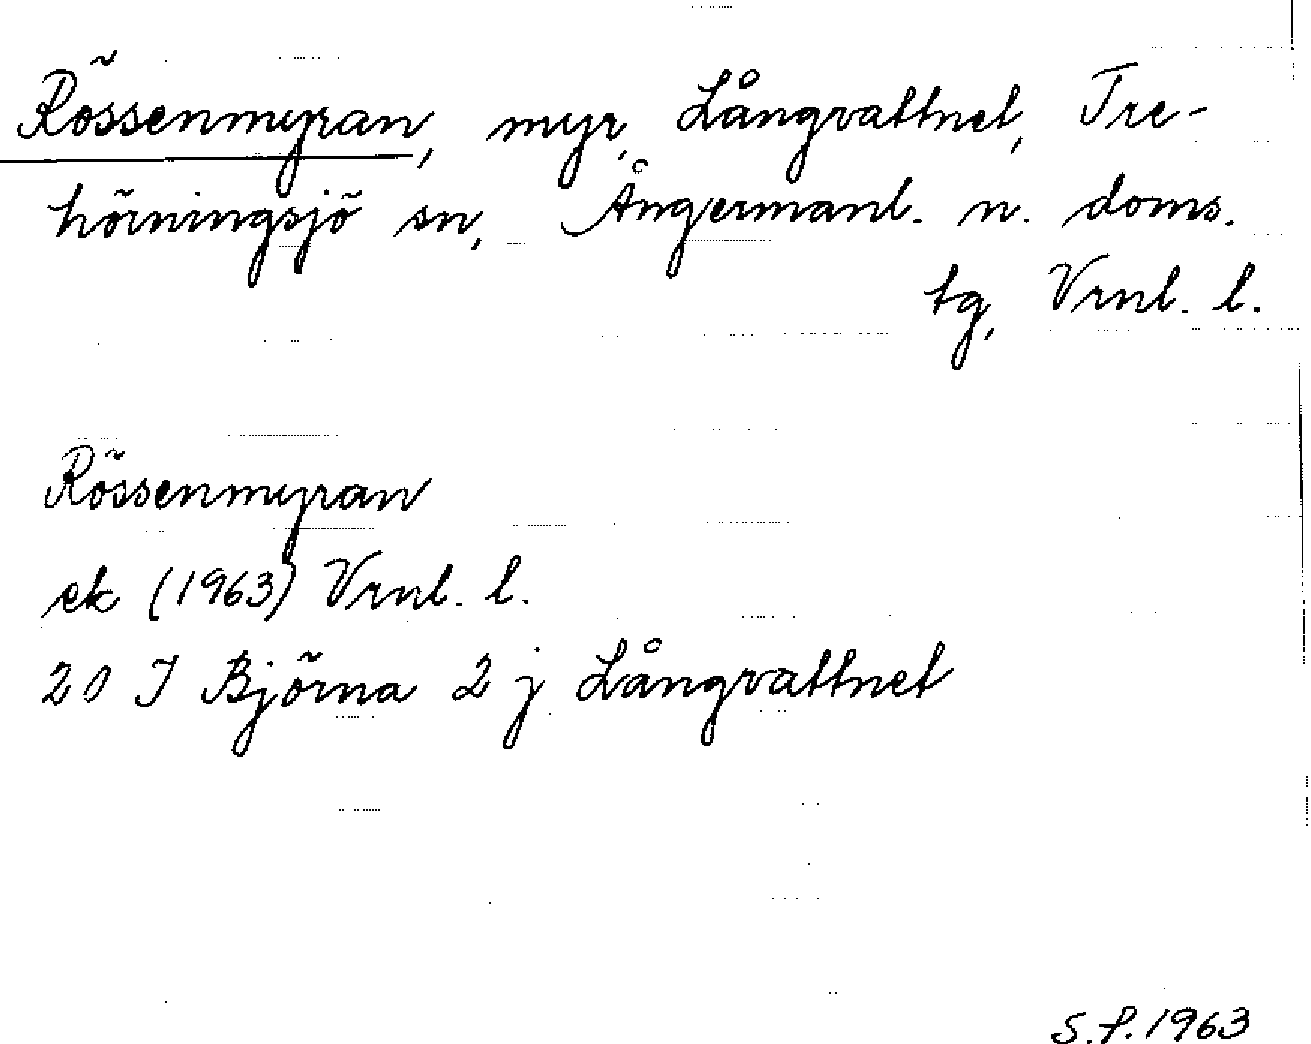 Rössenmyran, myr, Långvattnet, Tre-
hörningsjö sn, Ångermanl. n. doms.
tg, Vrnl. l.
Rössenmyran
ek (1963) Vrnl. l.
20 I Björna 2 j Långvattnet
S.P. 1963